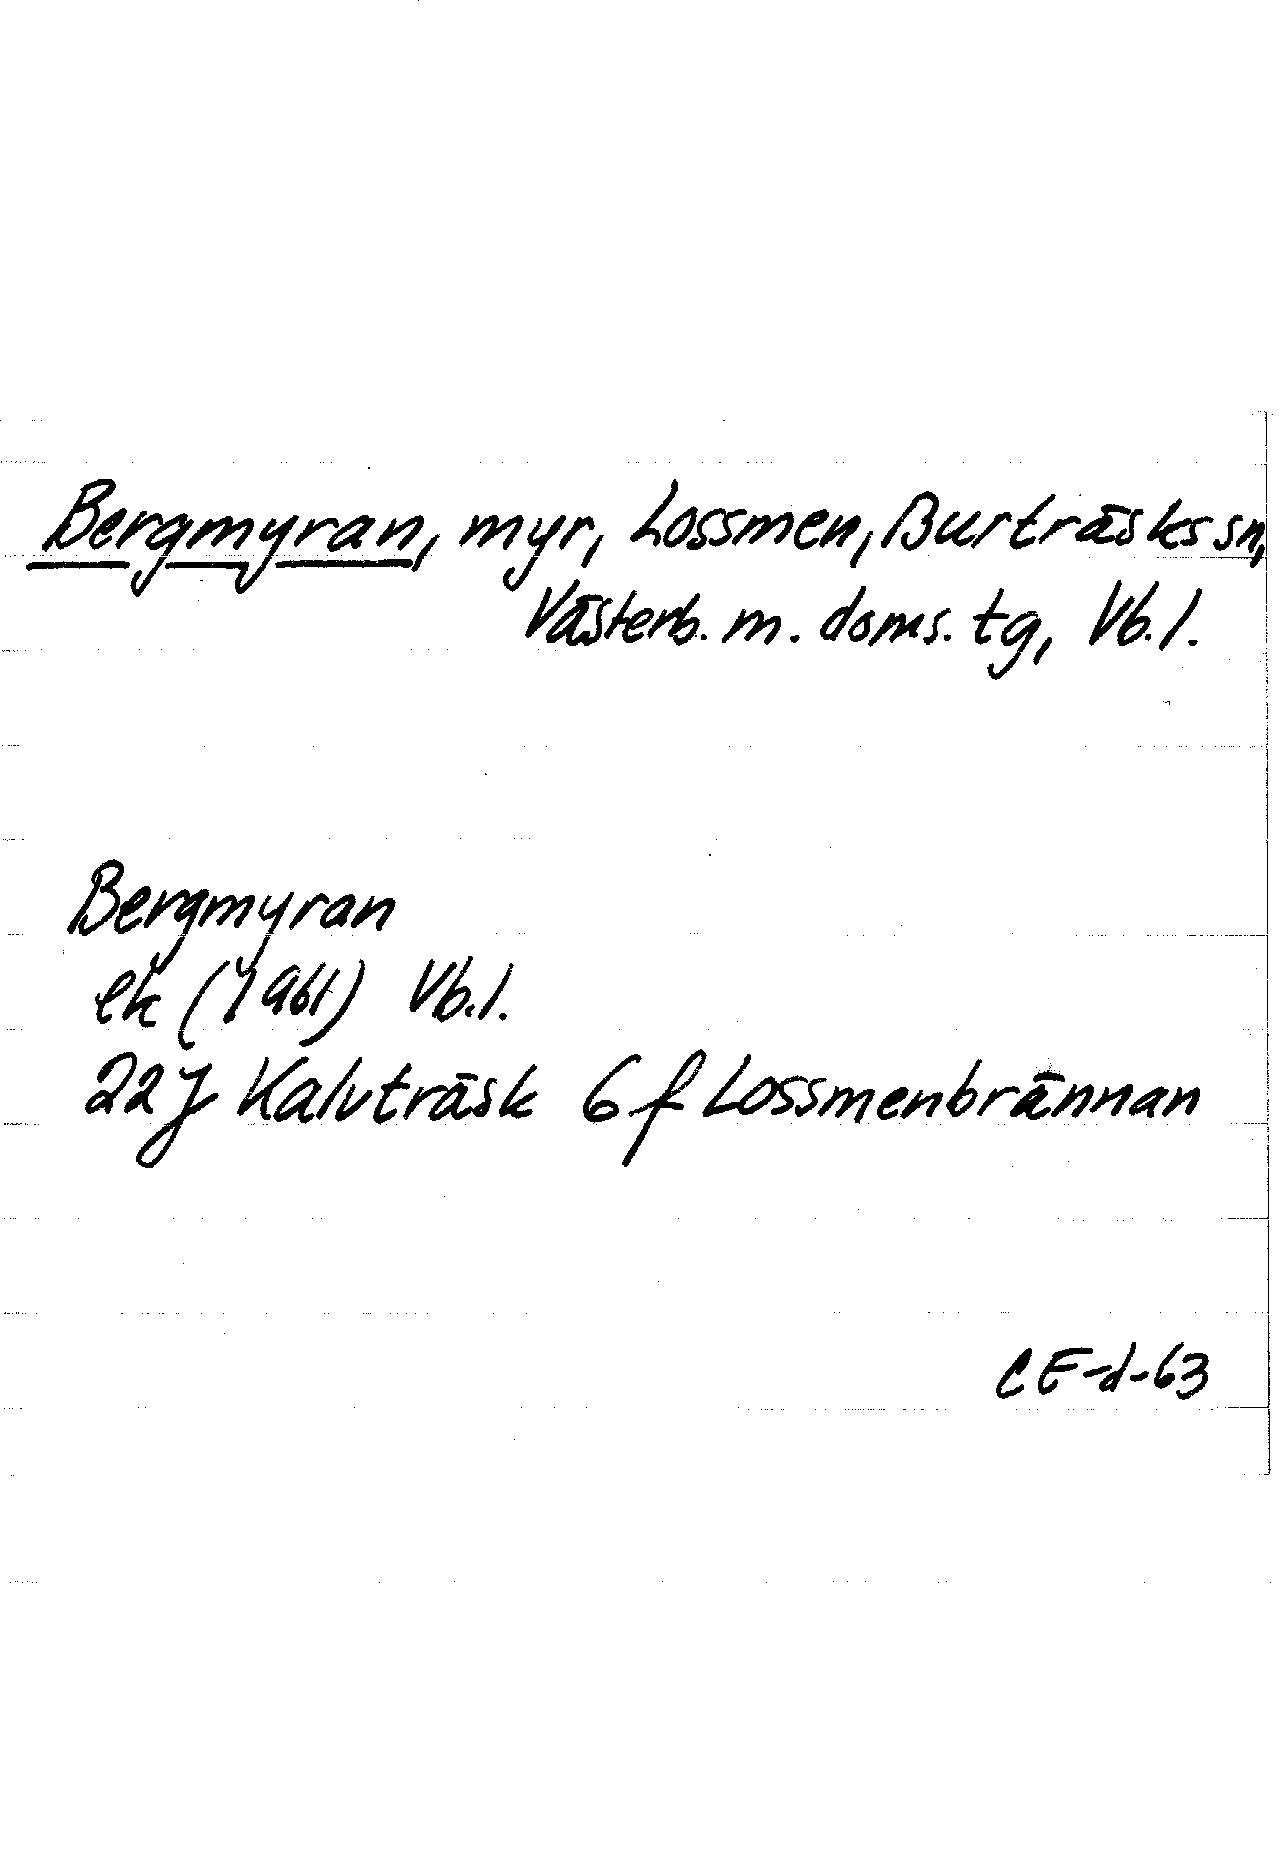 Bergmyran, myr, Lossmen, Burträsks sn,
Västerb. m. doms. tg, Vb. l.
Bergmyran
ek (1961) Vb. l.
22J Kalvträsk 6f Lossmenbrännan
CE-d-63